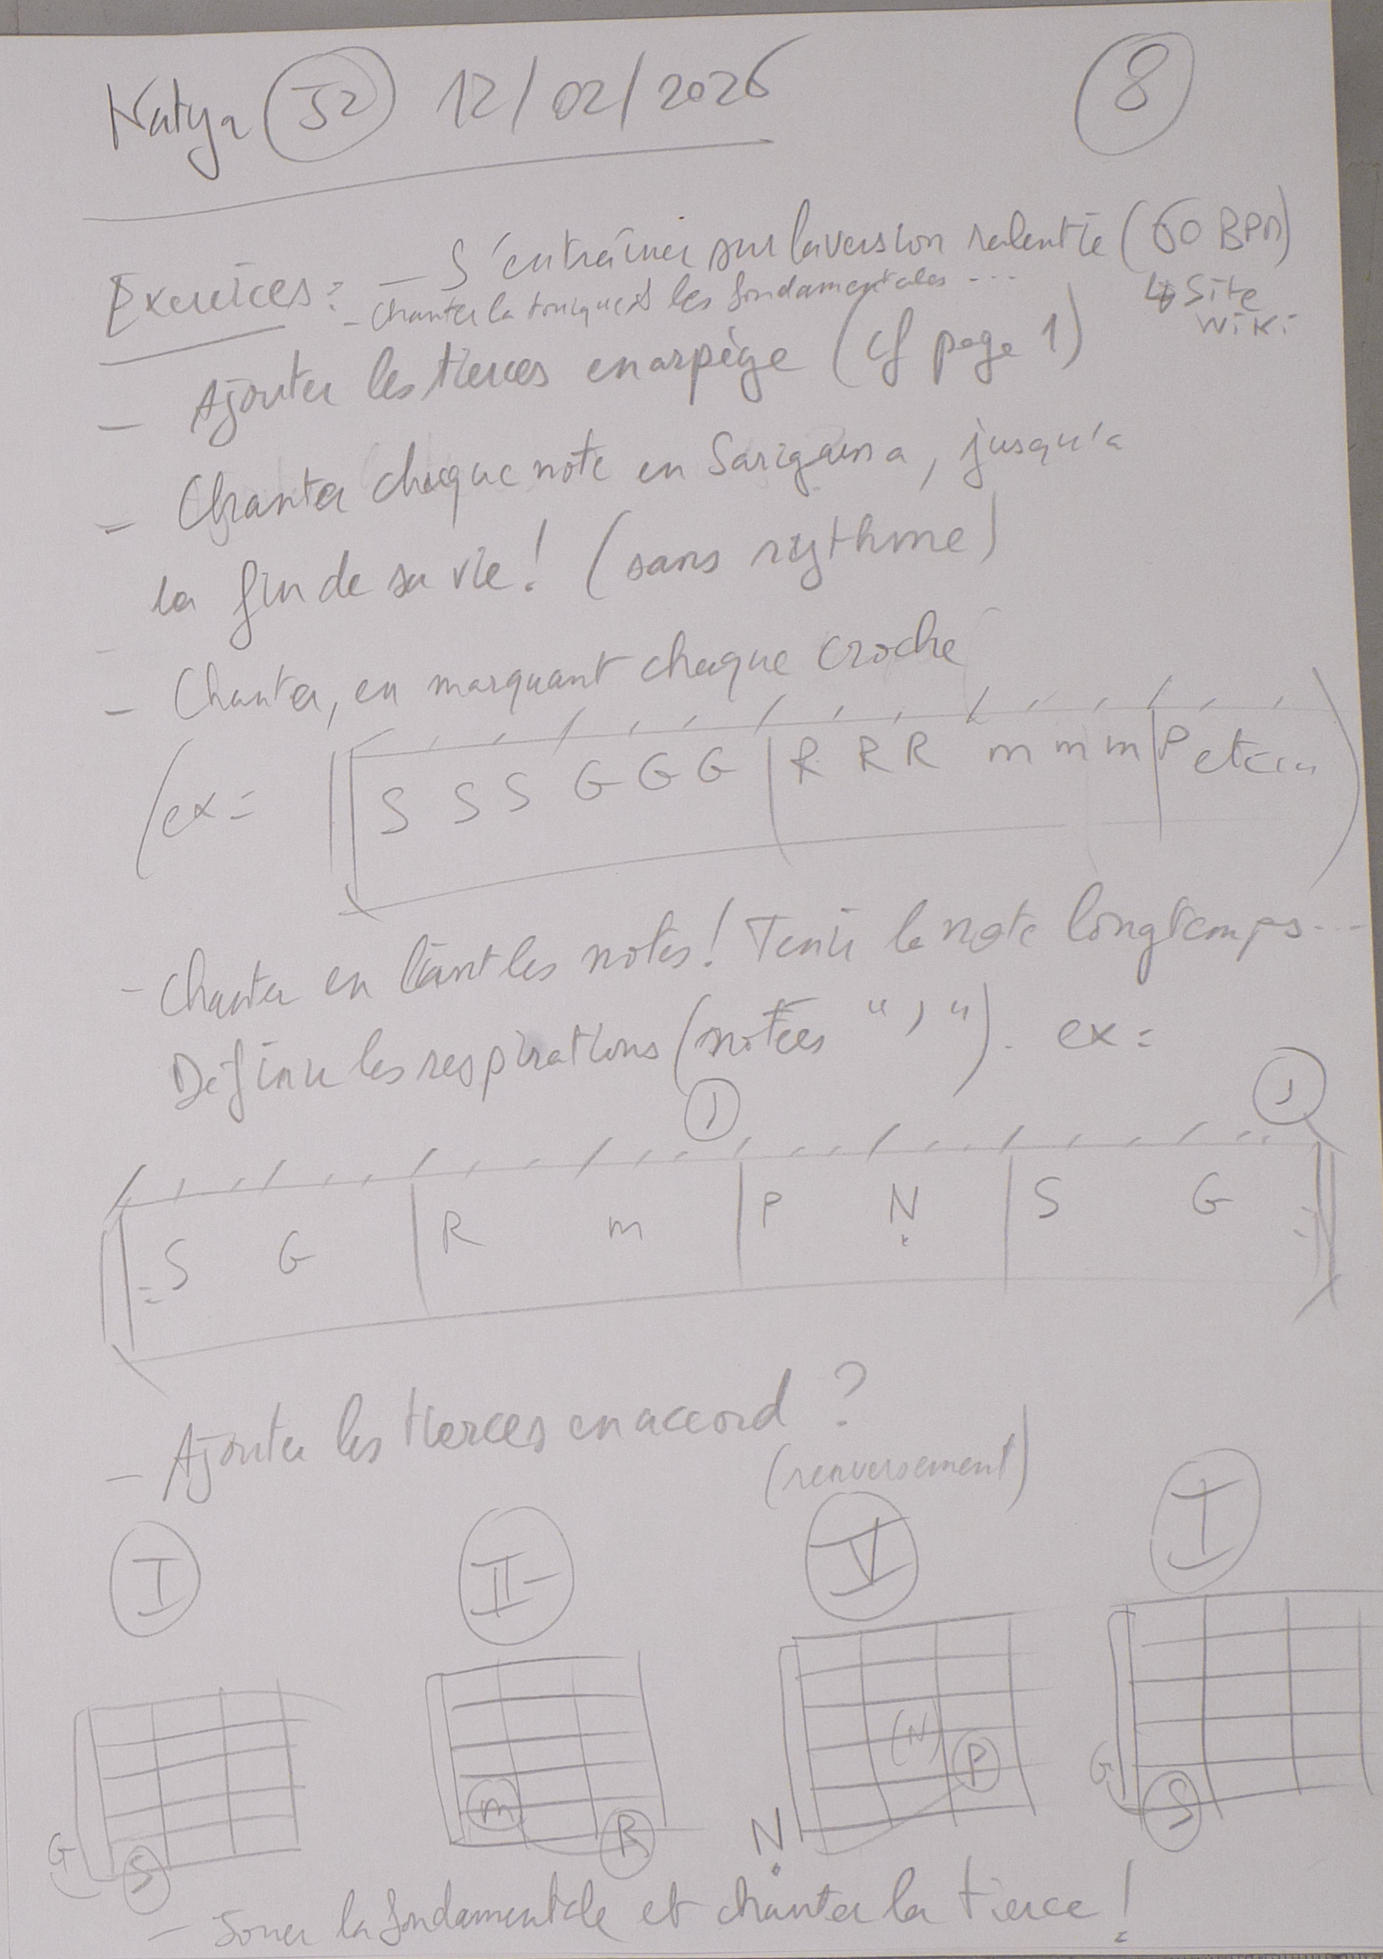 Natya 52 12/02/2026 8
Exercices : - S'entraîner sur la version ralentie (60 BPM)
↳ Site
wiki
- Chanter la tonique et les fondamentales ...
- Ajouter les tierces en arpège (cf page 1)
- Chanter chaque note en Sarigama, jusqu'à
la fin de sa vie ! (sans rythme)
- Chanter, en marquant chaque croche
(ex = S S S G G G | R R R m m m | P etc...)
- Chanter en liant les notes ! Tenir la note longtemps...
Définir les respirations (notées " , "). ex =
, ,
S G | R m | P Ṇ | S G
- Ajouter les tierces en accord ?
(renversement)
I II- V I
G S m R Ṇ (N) P G S
- Jouer la fondamentale et chanter la tierce !